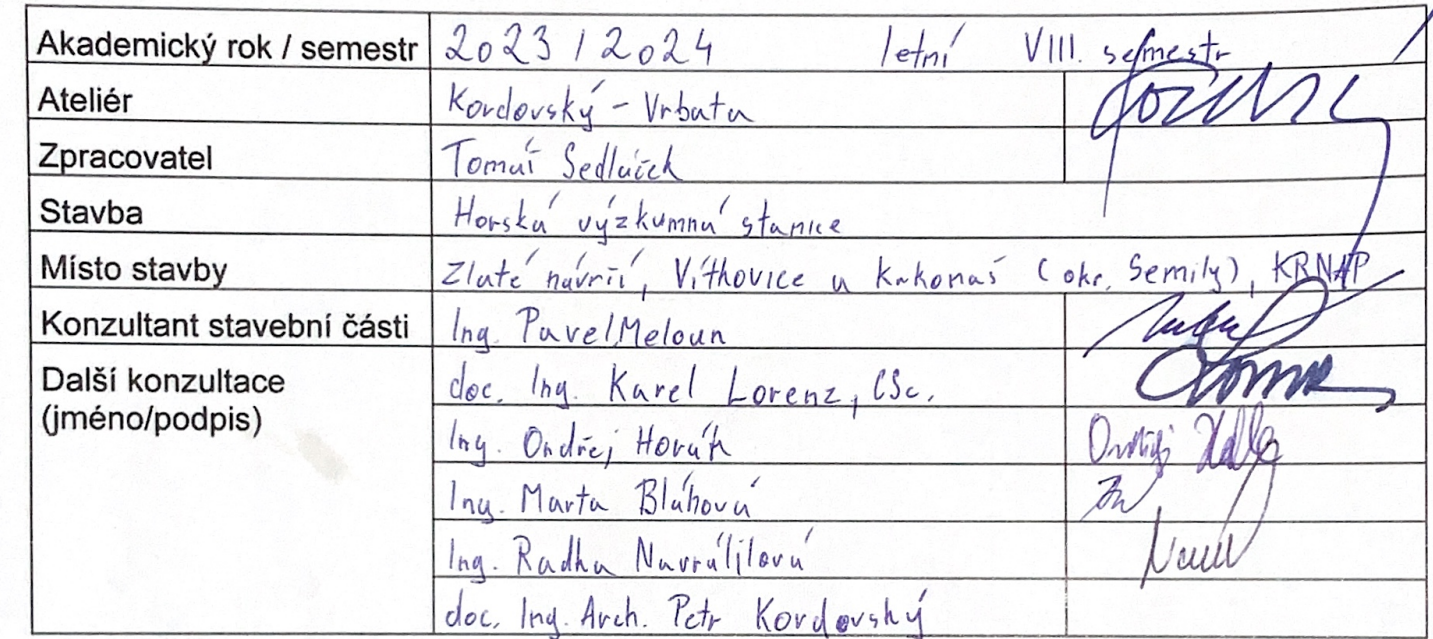 Akademický rok / semestr 2023 / 2024 letní VIII. semestr
Ateliér Kordovský - Vrbata
Zpracovatel Tomáš Sedláček
Stavba Horská výzkumná stanice
Místo stavby Zlaté návrší, Vítkovice u Krkonoš (okr. Semily), KRNAP
Konzultant stavební části Ing. Pavel Meloun
Další konzultace doc. Ing. Karel Lorenz, CSc.
(jméno/podpis)
Ing. Ondřej Horák
Ing. Marta Bláhová
Ing. Radka Navrátilová
doc. Ing. Arch. Petr Kordovský